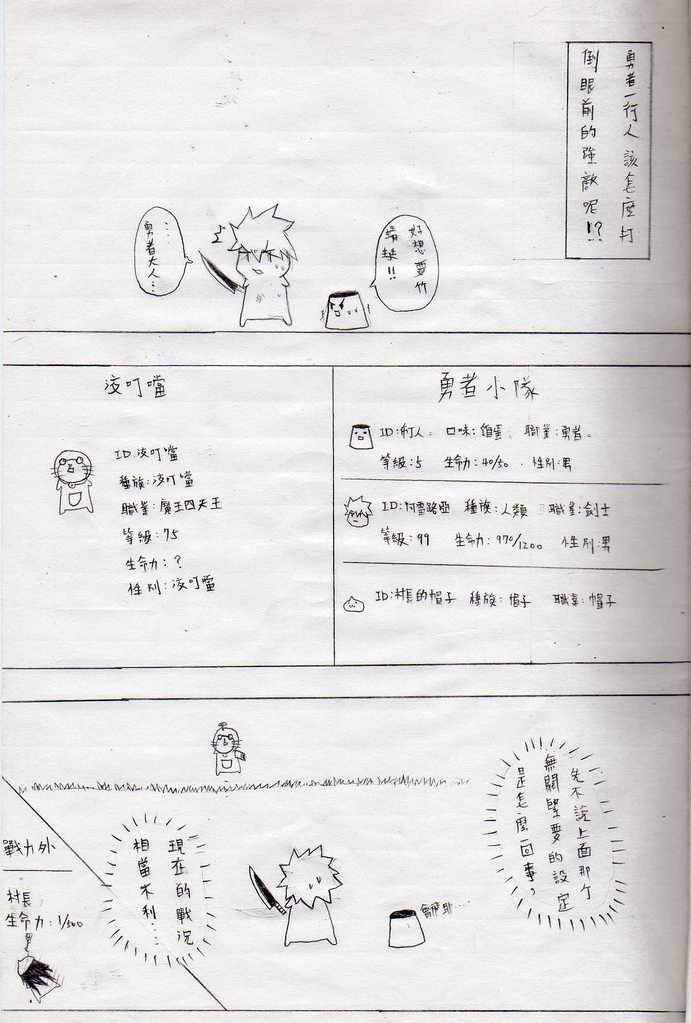 勇者一行人該怎麼打
倒眼前的強敵呢!?
好想要竹
蜻蜓!!
……
勇者大人…
勇者小隊
ID:布丁人。 口味:雞蛋、 職業:勇者。
等級:5 生命力:40/50 、性別:男
ID:阿雷路亞 種族:人類 職業:劍士
等級:99 生命力:970/1200 性別:男
ID:村長的帽子 種族:帽子 職業:帽子
沒叮噹
ID:沒叮噹
種族:沒叮噹
職業:魔王四天王
等級:75
生命力:?
性別:沒叮噹
先不說上面那个
無關緊要的設定
是怎麼回事?
會飛耶…
現在的戰況
相當不利…
戰力外
村長
生命力:1/500